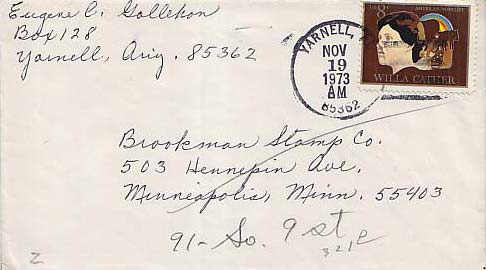 Eugene C. Gollehon
Box 128
Yarnell, Ariz. 85362
YARNELL,
NOV
19
1973
AM
85362
8c
AMERICAN NOVELIST
WILLA CATHER
Brookman Stamp Co.
503 Hennepin Ave.
Minneapolis, Minn. 55403
91- So. 9 st
321